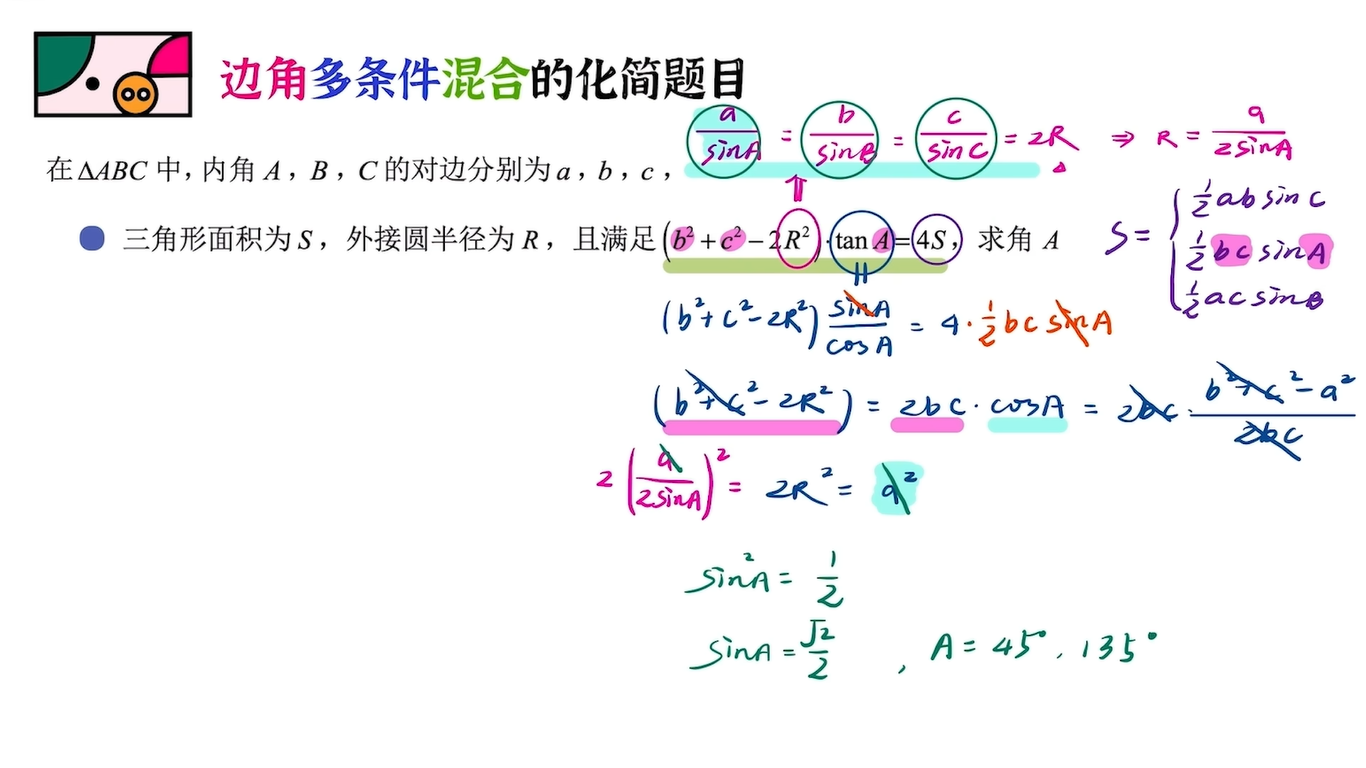 边角多条件混合的化简题目
a/sinA = b/sinB = c/sinC = 2R ⇒ R = a/2sinA
在 ΔABC 中，内角 A，B，C 的对边分别为 a，b，c，
三角形面积为 S，外接圆半径为 R，且满足(b²+c²−2R²)·tan A=4S，求角 A
S = { ½ab sinC
½bc sinA
½ac sinB
(b²+c²−2R²) sinA/cosA = 4·½bc sinA
(b²+c²−2R²) = 2bc·cosA = 2bc·(b²+c²−a²)/2bc
2(a/2sinA)² = 2R² = a²
sin²A = 1/2
sinA = √2/2 , A = 45°. 135°